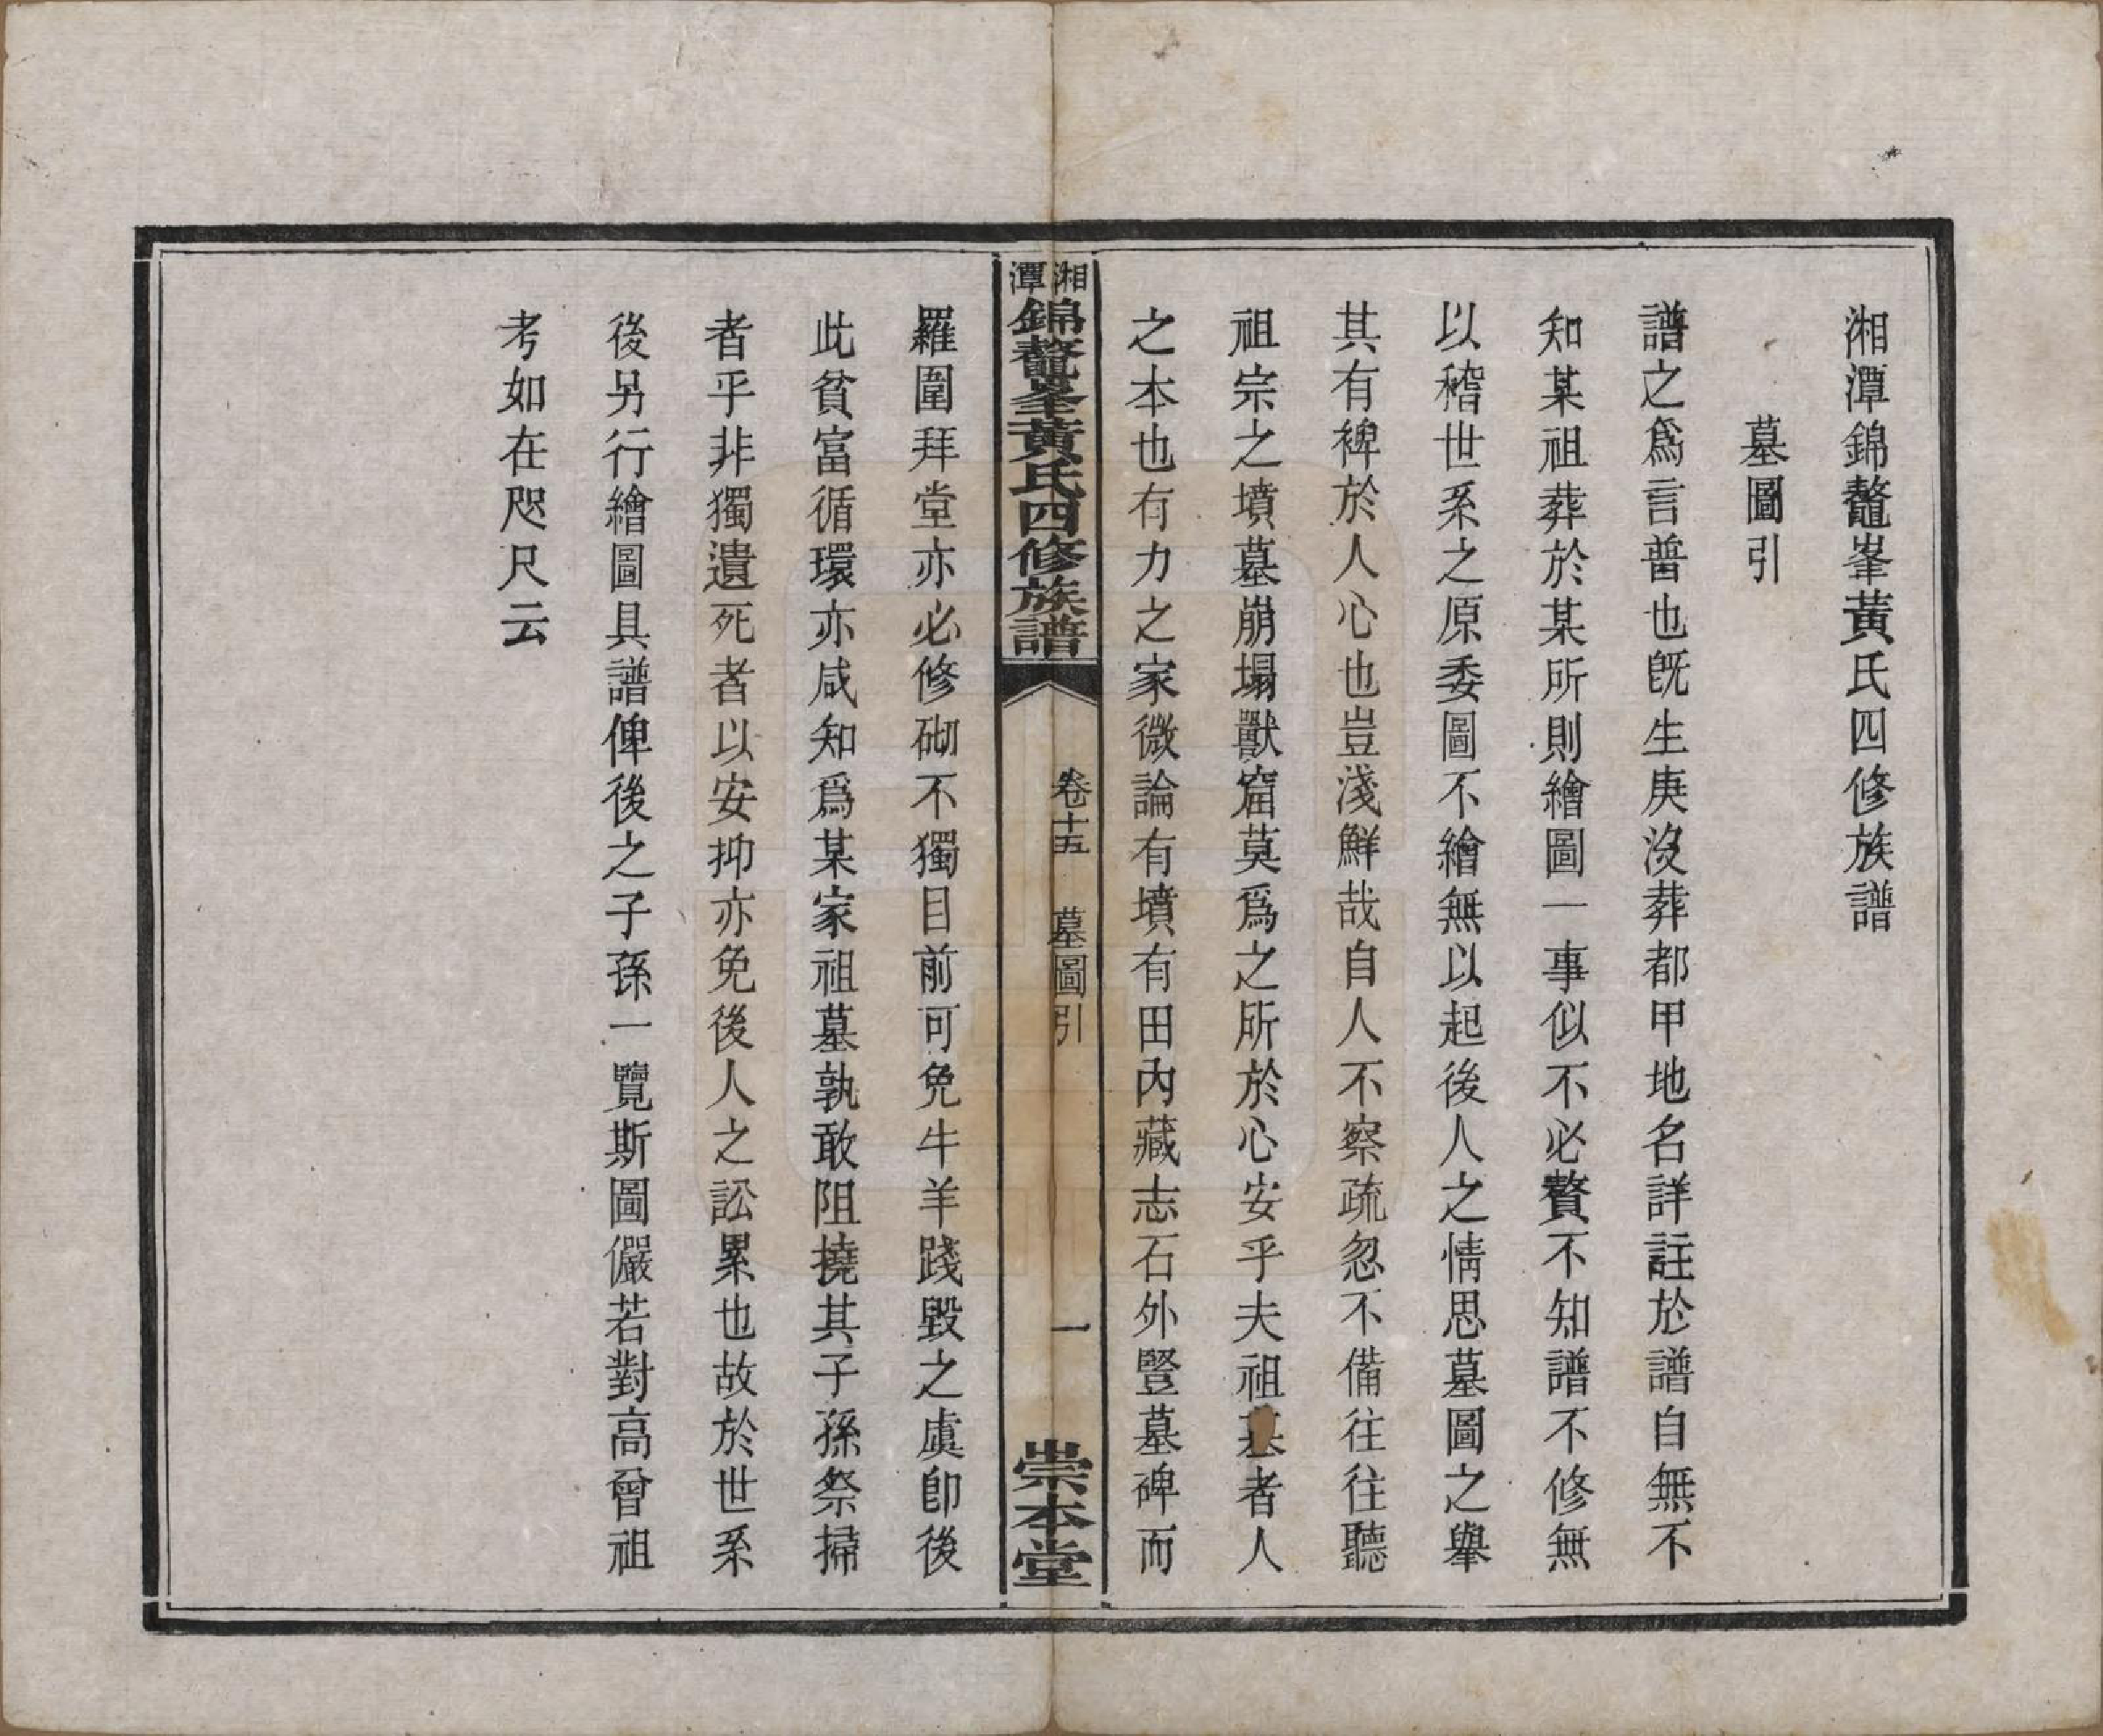 湘潭錦鼇峯黃氏四修族譜
墓圖引
譜之爲言普也旣生庚沒葬都甲地名詳註於譜自無不
知某祖葬於某所則繪圖一事似不必贅不知譜不修無
以稽世系之原委圖不繪無以起後人之情思墓圖之舉
其有裨於人心也豈淺鮮哉自人不察疏忽不備往往聽
祖宗之墳墓崩塌獸窟莫爲之所於心安乎夫祖墓者人
之本也有力之家微論有墳有田內藏志石外豎墓碑而
湘潭錦鼇峯黃氏四修族譜
卷十五 墓圖引 一
崇本堂
羅圍拜堂亦必修砌不獨目前可免牛羊踐毀之虞卽後
此貧富循環亦咸知爲某家祖墓孰敢阻撓其子孫祭掃
者乎非獨遺死者以安抑亦免後人之訟累也故於世系
後另行繪圖具譜俾後之子孫一覽斯圖儼若對高曾祖
考如在咫尺云